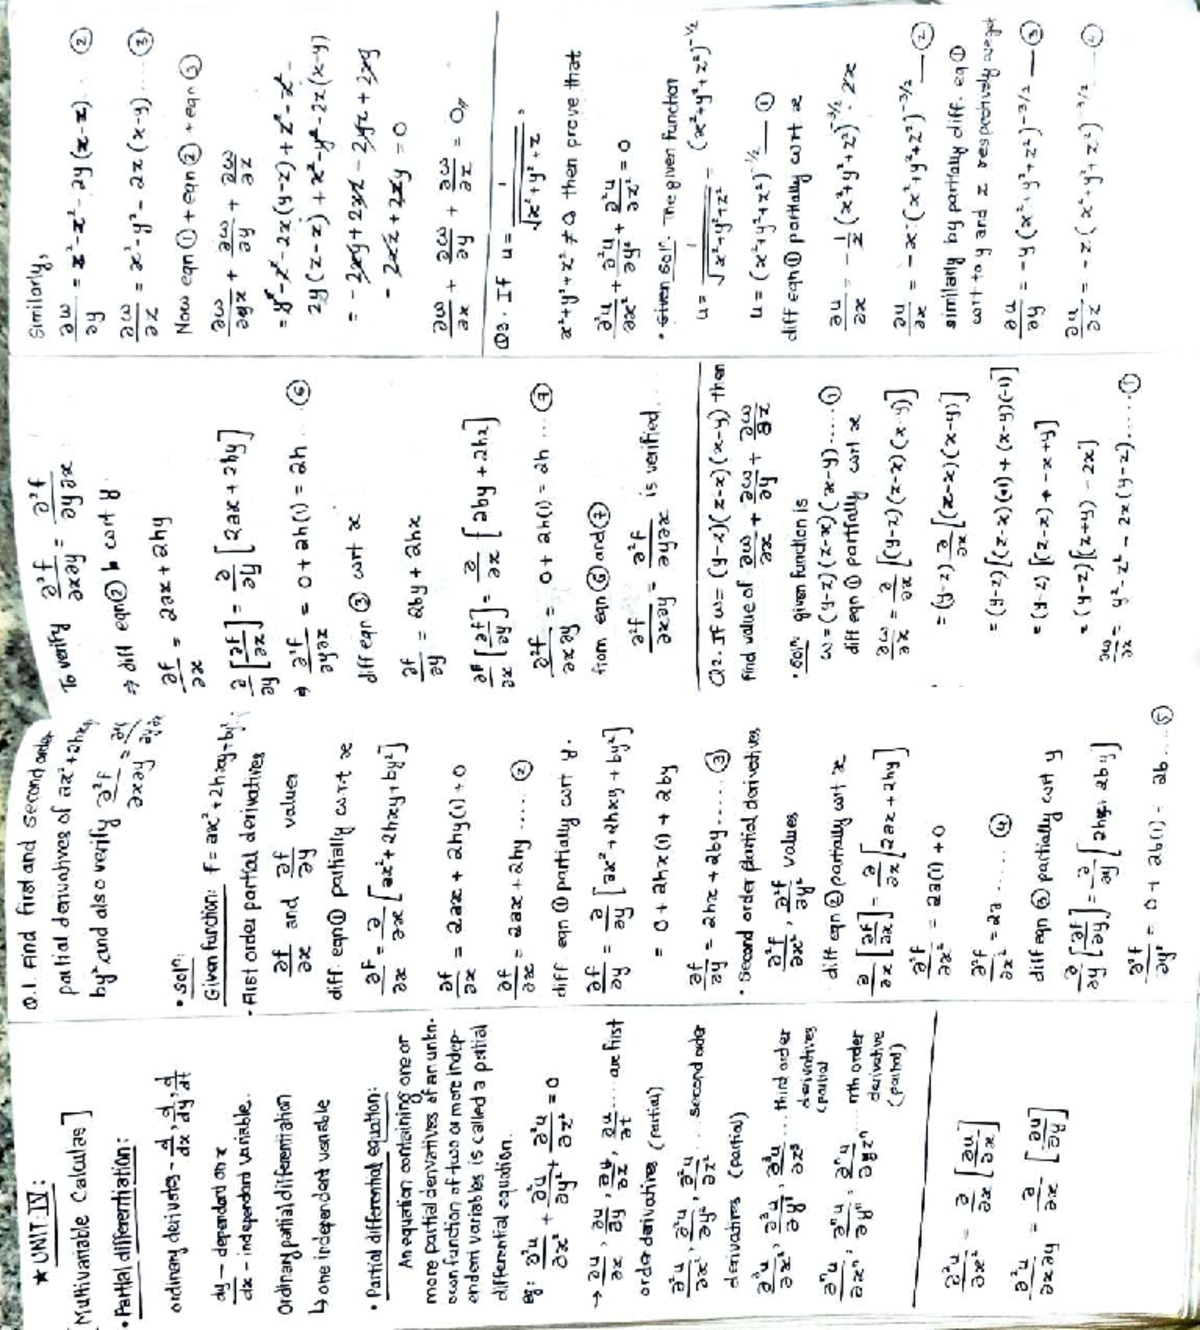 ★ UNIT-IV:
[Multivariable Calculas]
• Partial differentiation:
ordinary derivates - d/dx, d/dy, d/dt
dy - dependant on x
dx - independant variable.
Ordinary partial differentiation
↳ one independent variable
• Partial differential equation:
An equation containing one or
more partial derivatives of an unkn-
own function of two or more indep-
endent variables is called a partial
differential equation.
eg: ∂²u/∂x² + ∂²u/∂y² + ∂²u/∂z² = 0
→ ∂u/∂x, ∂u/∂y, ∂u/∂z, ∂u/∂t ..... are first
order derivatives (partial)
∂²u/∂x², ∂²u/∂y², ∂²u/∂z² ... second order
derivatives (partial)
∂³u/∂x³, ∂³u/∂y³, ∂³u/∂z³ ... third order
derivatives
(partial
∂ⁿu/∂xⁿ, ∂ⁿu/∂yⁿ, ∂ⁿu/∂zⁿ ... nth order
derivative
(partial)
∂²u/∂x² = ∂/∂x [∂u/∂x]
∂²u/∂x∂y = ∂/∂x [∂u/∂y]
Q.1. Find first and second order
partial derivatives of ax²+2hxy
by² and also verify ∂²f/∂x∂y = ∂²f/∂y∂x
• Solⁿ:
Given function: f = ax²+2hxy+by²
• First order partial derivatives
∂f/∂x and ∂f/∂y values
diff. eqn① partially w.r.t x
∂f/∂x = ∂/∂x [ax²+2hxy+by²]
∂f/∂x = 2ax + 2hy(1) + 0
∂f/∂x = 2ax + 2hy ..... ②
diff eqn ① partially wrt y.
∂f/∂y = ∂/∂y [ax²+2hxy+by²]
= 0 + 2hx(1) + 2by
∂f/∂y = 2hx + 2by ..... ③
• Second order partial derivatives
∂²f/∂x², ∂²f/∂y² values
diff eqn ② partially wrt x
∂/∂x [∂f/∂x] = ∂/∂x [2ax + 2hy]
∂²f/∂x² = 2a(1) + 0
∂²f/∂x² = 2a ...... ④
diff eqn ③ partially wrt y
∂/∂y [∂f/∂y] = ∂/∂y [2hx + 2by]
∂²f/∂y² = 0 + 2b(1) = 2b ... ⑤
To verify ∂²f/∂x∂y = ∂²f/∂y∂x
⇒ diff eqn② wrt y
∂f/∂x = 2ax + 2hy
∂/∂y [∂f/∂x] = ∂/∂y [2ax + 2hy]
⇒ ∂²f/∂y∂x = 0 + 2h(1) = 2h ... ⑥
diff eqn ③ wrt x
∂f/∂y = 2by + 2hx
∂/∂x [∂f/∂y] = ∂/∂x [2by + 2hx]
∂²f/∂x∂y = 0 + 2h(1) = 2h ... ⑦
from eqn ⑥ and ⑦
∂²f/∂x∂y = ∂²f/∂y∂x is verified...
Q2. If ω = (y-z)(z-x)(x-y) then
find value of ∂ω/∂x + ∂ω/∂y + ∂ω/∂z
• Solⁿ: given function is
ω = (y-z)(z-x)(x-y) ..... ①
diff eqn ① partially wrt x
∂ω/∂x = ∂/∂x [(y-z)(z-x)(x-y)]
= (y-z) ∂/∂x [(z-x)(x-y)]
= (y-z) [(z-x)(1) + (x-y)(-1)]
= (y-z) [(z-x) + -x+y]
= (y-z) [(z+y) - 2x]
∂ω/∂x = y²-z² - 2x(y-z) ..... ①
Similarly,
∂ω/∂y = z²-x² - 2y(z-x) .... ②
∂ω/∂z = x²-y² - 2z(x-y) .... ③
Now eqn ① + eqn ② + eqn ③
∂ω/∂x + ∂ω/∂y + ∂ω/∂z
= y²-z²-2x(y-z) + z²-x²-
2y(z-x) + x²-y²-2z(x-y)
= -2xy + 2xz - 2yz + 2xy
- 2xz + 2zy = 0
∂ω/∂x + ∂ω/∂y + ∂ω/∂z = 0//
Q3. If u = 1/√x²+y²+z,
x²+y²+z² ≠ 0 then prove that
∂²u/∂x² + ∂²u/∂y² + ∂²u/∂z² = 0
• Given Solⁿ: The given function
u = 1/√x²+y²+z² = (x²+y²+z²)^-1/2
u = (x²+y²+z²)^-1/2 —— ①
diff eqn ① partially wrt x
∂u/∂x = -1/2 (x²+y²+z²)^-3/2 . 2x
∂u/∂x = -x (x²+y²+z²)^-3/2 —— ②
similarly by partially diff. eq ①
wrt to y and z respectively we get
∂u/∂y = -y (x²+y²+z²)^-3/2 —— ③
∂u/∂z = -z (x²+y²+z²)^-3/2 —— ④